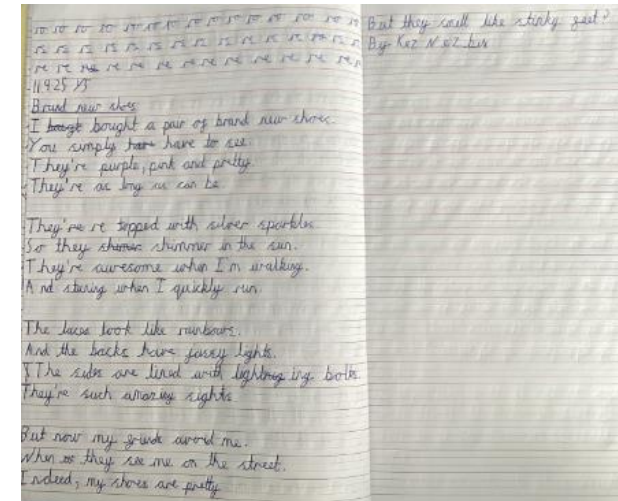 ro ro ro ro ro ro ro ro ro ro ro ro
rs rs rs rs rs rs rs rs rs rs rs rs
re re re re re re re re re re re re
Brand new shoes
I bought a pair of brand new shoes.
You simply have to see.
They're purple, pink and pretty.
They're as long as can be.
They're re topped with silver sparkles
So they shimmer in the sun.
They're awesome when I'm walking.
And staring when I quickly run.
The laces look like rainbows.
And the backs have lights.
The sides are lined with ing bolts.
They're such amazing sights
But now my avoid me.
When they see me on the street.
Indeed, my shoes are pretty
But they smell like stinky feet?
By